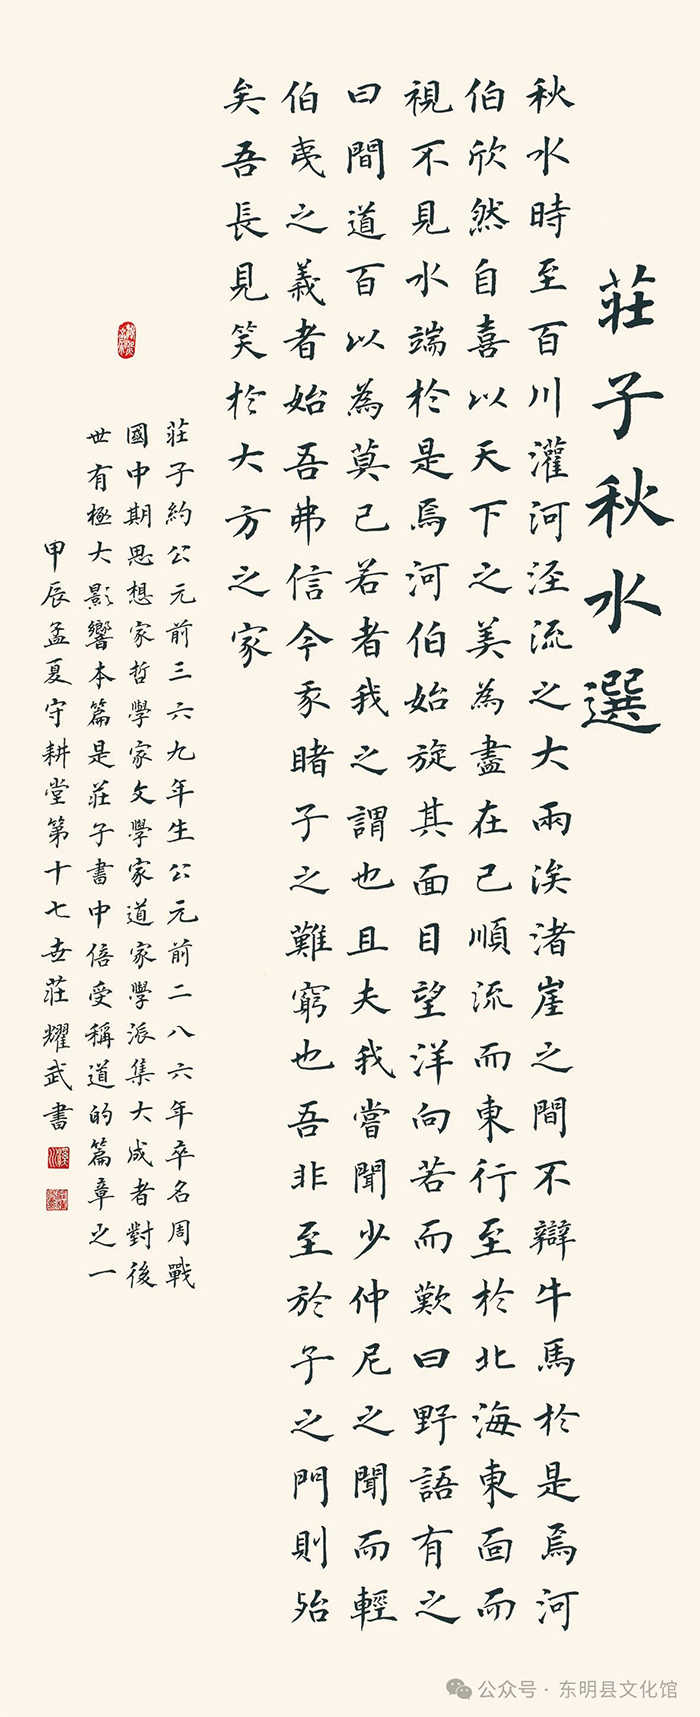 莊子秋水選
秋水時至百川灌河泾流之大兩涘渚崖之間不辯牛馬於是焉河
伯欣然自喜以天下之美為盡在己順流而東行至於北海東面而
視不見水端於是焉河伯始旋其面目望洋向若而歎曰野語有之
曰聞道百以為莫己若者我之謂也且夫我嘗聞少仲尼之聞而輕
伯夷之義者始吾弗信今我睹子之難窮也吾非至於子之門則殆
矣吾長見笑於大方之家
莊子約公元前三六九年生公元前二八六年卒名周戰
國中期思想家哲學家文學家道家學派集大成者對後
世有極大影響本篇是莊子書中倍受稱道的篇章之一
甲辰孟夏守耕堂第十七世莊耀武書
公众号·东明县文化馆